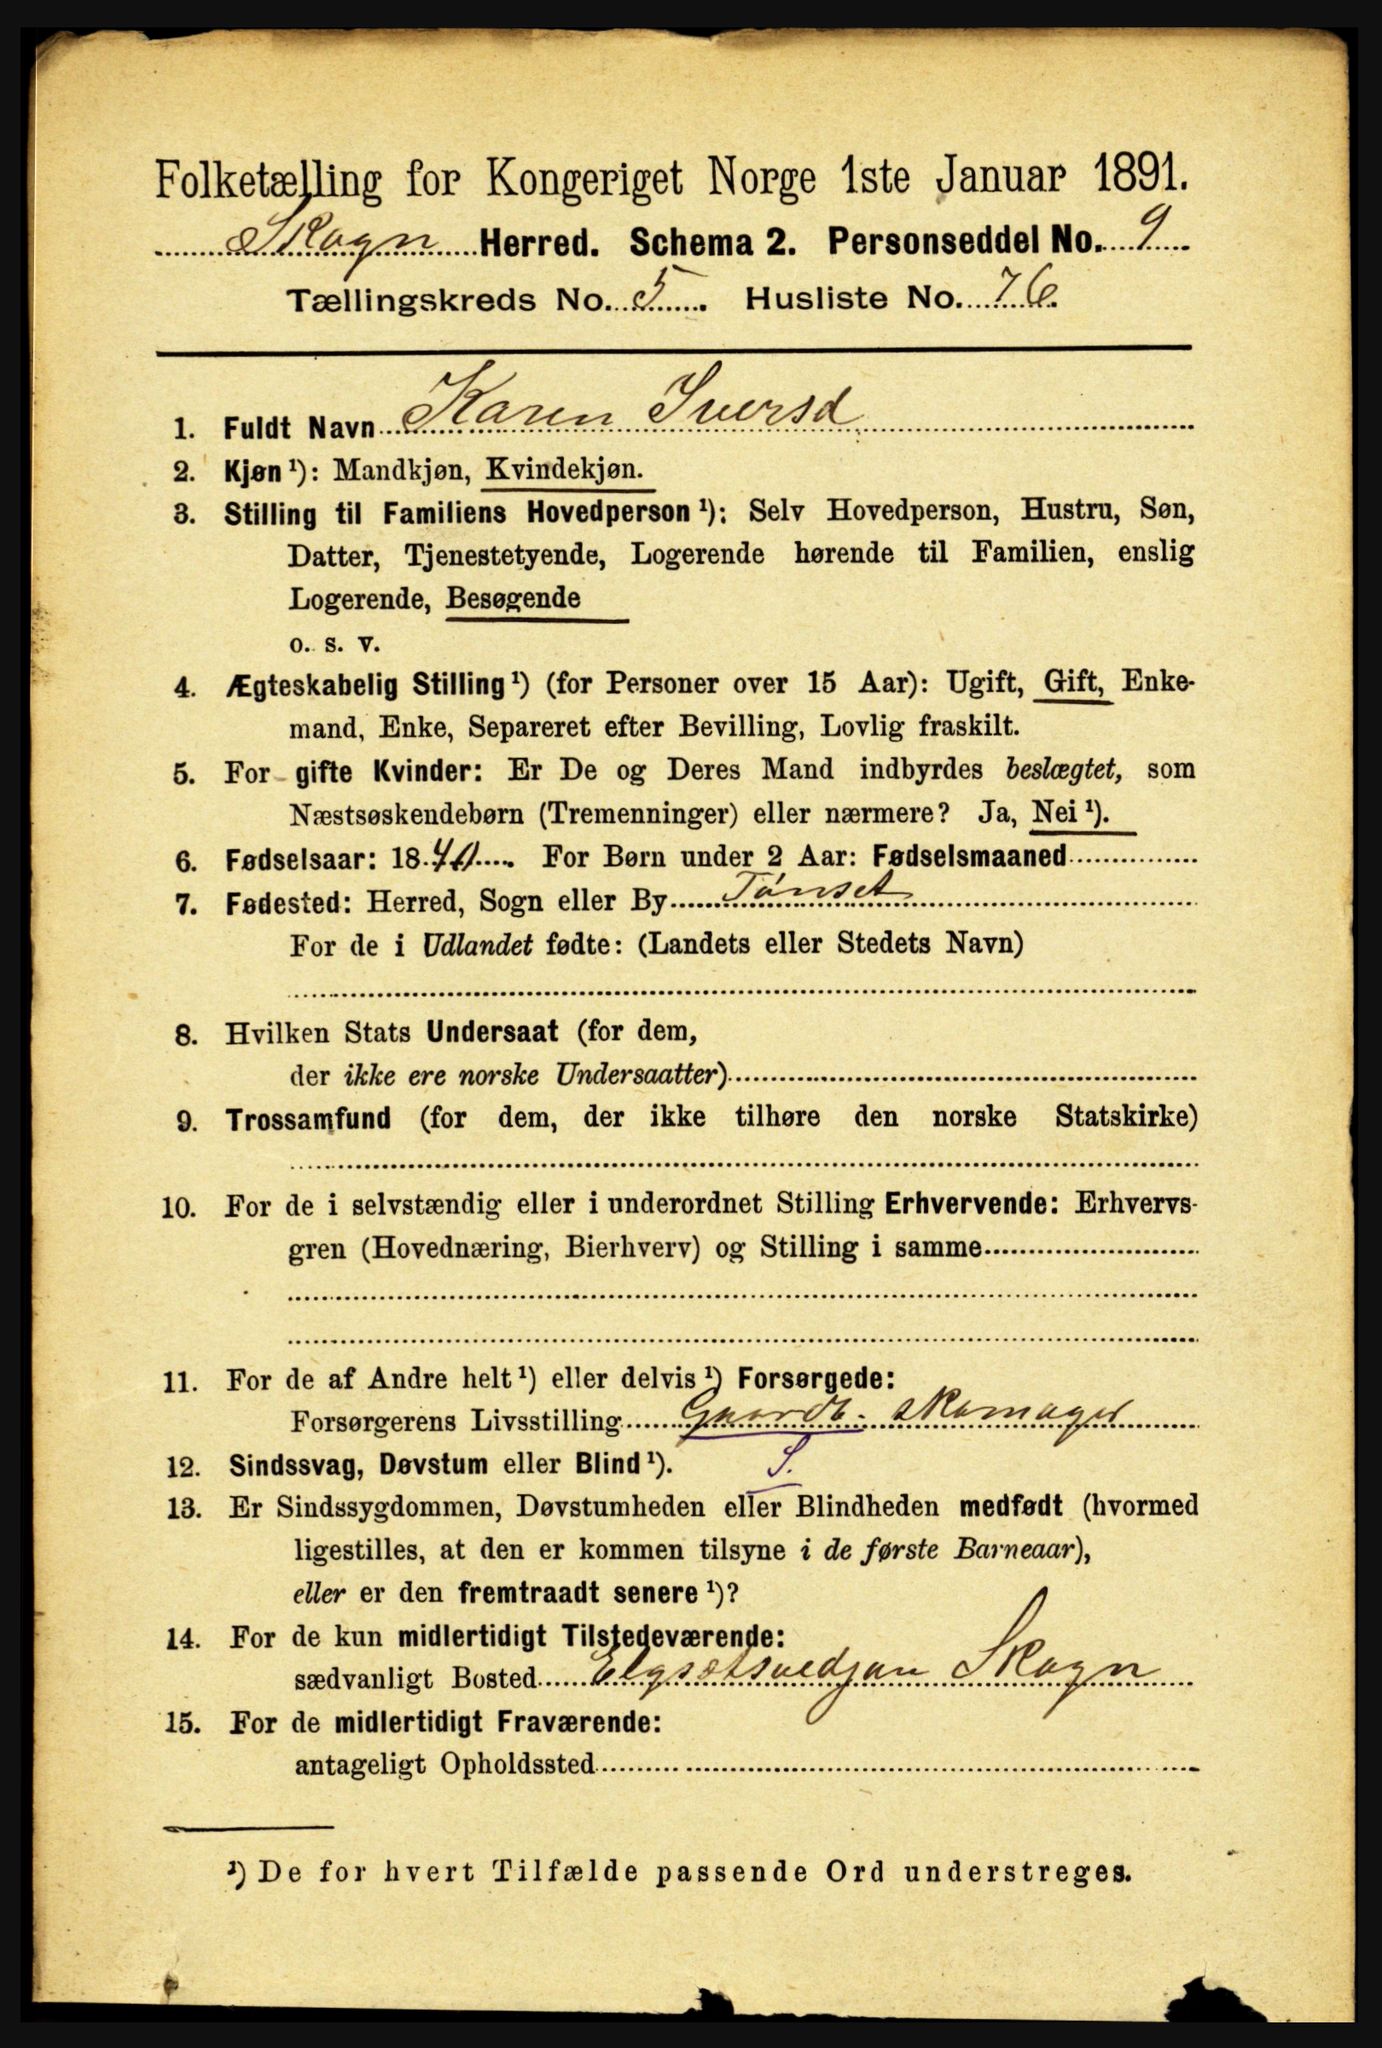 Folketælling for Kongeriget Norge 1ste Januar 1891.
Skogn Herred. Schema 2. Personseddel No. 9
Tællingskreds No. 5. Husliste No. 76.
1. Fuldt Navn Karen Iversd
2. Kjøn ¹): Mandkjøn, Kvindekjøn.
3. Stilling til Familiens Hovedperson ¹): Selv Hovedperson, Hustru, Søn,
Datter, Tjenestetyende, Logerende hørende til Familien, enslig
Logerende, Besøgende
o. s. v.
4. Ægteskabelig Stilling ¹) (for Personer over 15 Aar): Ugift, Gift, Enke-
mand, Enke, Separeret efter Bevilling, Lovlig fraskilt.
5. For gifte Kvinder: Er De og Deres Mand indbyrdes beslægtet, som
Næstsøskendebørn (Tremenninger) eller nærmere? Ja, Nei ¹).
6. Fødselsaar: 1840. For Børn under 2 Aar: Fødselsmaaned
7. Fødested: Herred, Sogn eller By Tønset
For de i Udlandet fødte: (Landets eller Stedets Navn)
8. Hvilken Stats Undersaat (for dem,
der ikke ere norske Undersaatter)
9. Trossamfund (for dem, der ikke tilhøre den norske Statskirke)
10. For de i selvstændig eller i underordnet Stilling Erhvervende: Erhvervs-
gren (Hovednæring, Bierhverv) og Stilling i samme
11. For de af Andre helt ¹) eller delvis ¹) Forsørgede:
Forsørgerens Livsstilling Gaardb. skomager
12. Sindssvag, Døvstum eller Blind ¹). S.
13. Er Sindssygdommen, Døvstumheden eller Blindheden medfødt (hvormed
ligestilles, at den er kommen tilsyne i de første Barneaar),
eller er den fremtraadt senere ¹)?
14. For de kun midlertidigt Tilstedeværende:
sædvanligt Bosted Elgsætsvedjan Skogn
15. For de midlertidigt Fraværende:
antageligt Opholdssted
¹) De for hvert Tilfælde passende Ord understreges.